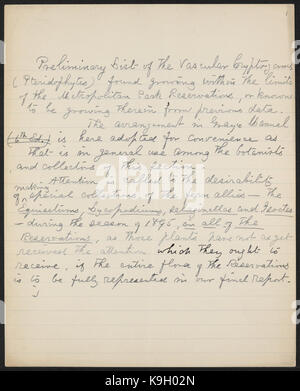 Preliminary List of the Vascular Cryptogams
(Pteridophytes) found growing within the limits
of the Metropolitan Park Reservations, or known
to be growing therein from previous data.
The arrangement in Grays Manual
(6th Ed.) is here adopted for convenience as
that is in general use among the botanists
and collectors in this section.
Attention is called to the desirability
of making special collections of the fern allies — the
Equisetums, Lycopodiums, Selaginellas and Isoetes
— during the season of 1895, in all of the
Reservations, as these plants have not as yet
received the attention which they ought to
receive, if the entire flora of the Reservations
is to be fully represented in our final report.
alamy
Image ID: K9H02N
www.alamy.com